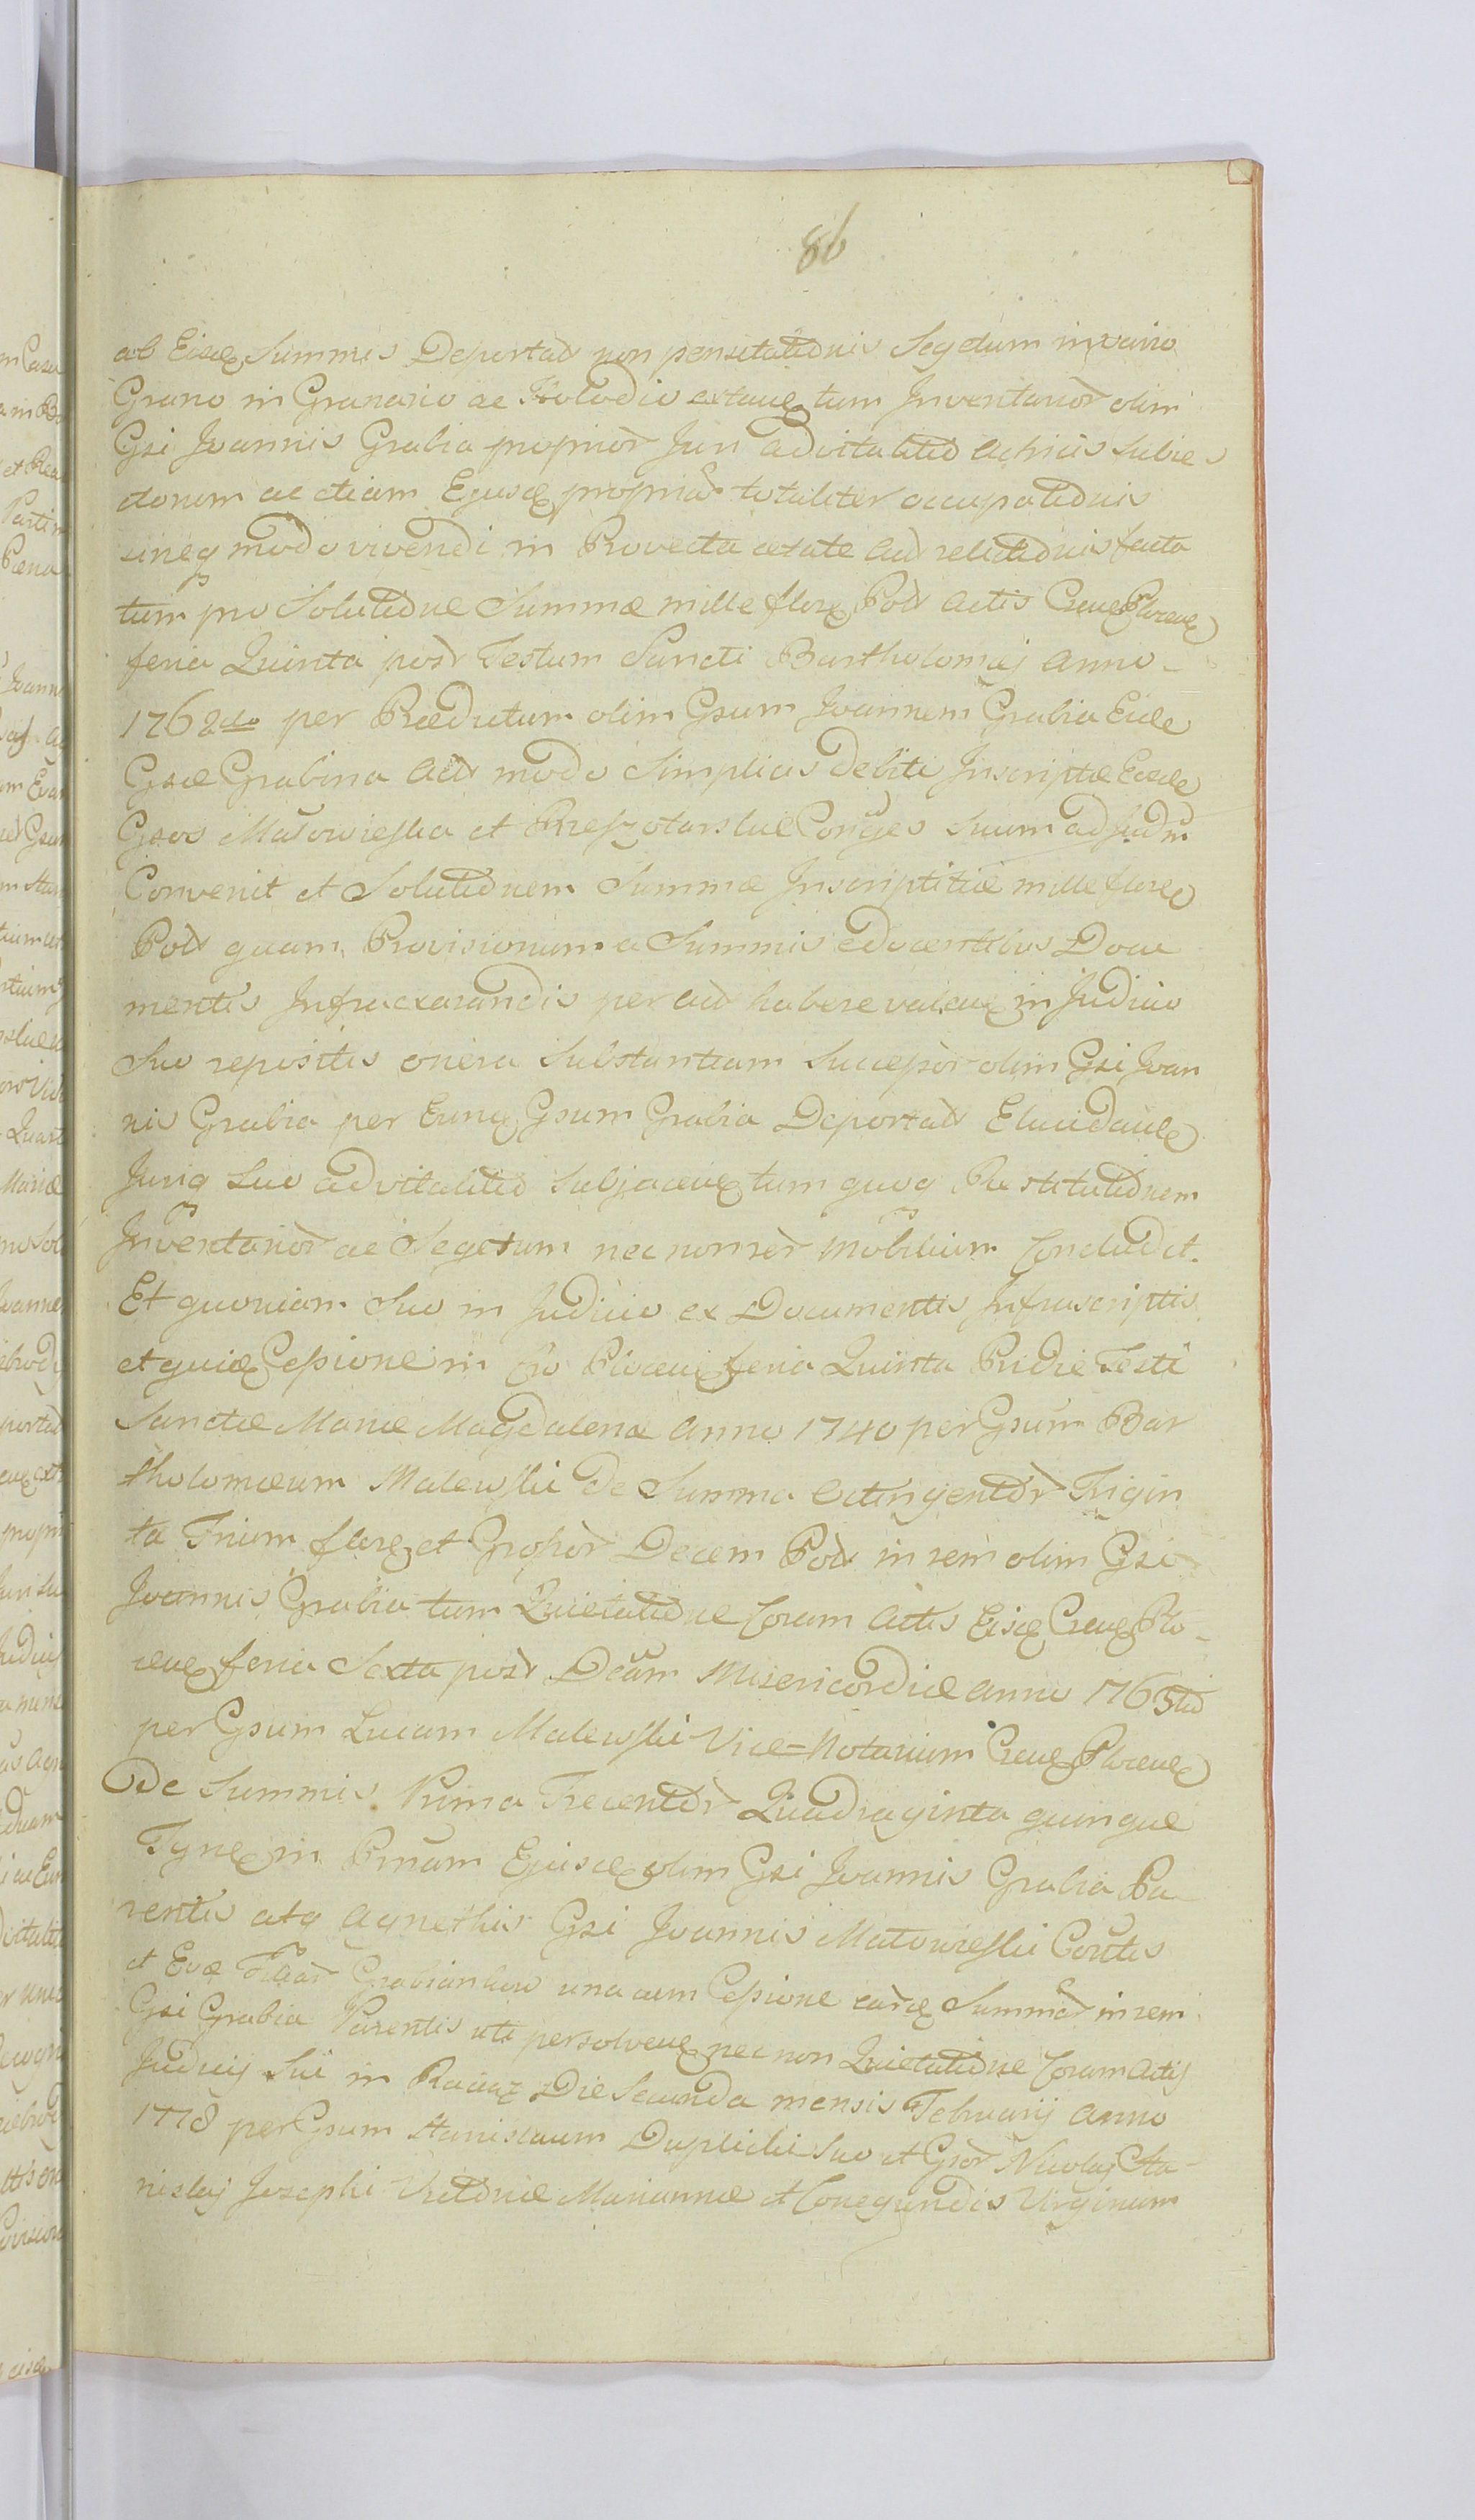 86
ab Eisdę Summis Deportad non pensitationis Segetum in vario
Grano in Granario ac Stododio extaneę tum Inventarior olim
Gsi Joannis Grabia proprior Juri advitalitio Actricis Subie
ctorum ac etiam Ejusdę propriar totaliter occupationis
sineq modo vivendi in Provecta aetate Act relictionis facta
tum pro Solutione Summae mille florę Pol Actis Crenę Plocenę
feria Quinta post Festum Sancti Bartholomaj Anno
1762do per Praedictum olim Gsum Joannem Grabia Eidę
Gsae Grabina Act modo Simplicis debiti Inscriptae Eosdę
Gsos Matowieski et Przeszotarskie Conges Suum ad Judm
Convenit et Solutionem Summae Inscriptitiae mille florę
Pol quam Provisionum a Summis edocentibus Docu
mentis Infraexarandis per Act habere valenę in Judicio
Suo repositis onera Substantiam Successor olim Gsi Joan
nis Grabia per Eunę Gsum Grabia Deportad Elucidanę
Juriq Suo advitalitio Subjacenę tum quoq Restitutionem
Inventarior ac Segetum nec non rer mobilium Concludit.
Et quoniam Suo in Judicio ex Documentis Infrascriptis
et quidę Cessione in Cro Plocenę feria Quinta Pridie Festi
Sanctae Mariae Magdalenae Anno 1740 per Gsum Bar
tholomaeum Malewski de Summa Octingentor Trigin
ta Trium florę et Grossor Decem Pol in rem olim Gsi
Joannis Grabia tum Quietatione Coram Actis Eisdę Crenę Plo
cenę feria Sexta post Dcam Misericordiae Anno 1763tio
per Gsum Lucam Malewski Vice=Notarium Crenę Plocenę
De Summis Prima Trecentor Quadraginta quinque
Tynę in Prnam Ejusdę olim Gsi Joannis Grabia Pa
rentis atq Agnethis Gsi Joannis Matowieski Contis
et Evae Filiar Grabianken una cum Cessione eardę Summar in rem
Gsi Grabia Parentis uti persolvenę nec non Quietatione Coram Actis
Judicij Sui in Raciąz Die Secunda mensis Februarij Anno
1778 per Gsum Stanislaum Duplicki Suo et Gsor Nicolaj Sta
nislaj Josephi Victoriae Mariannae et Conegundis Virginum